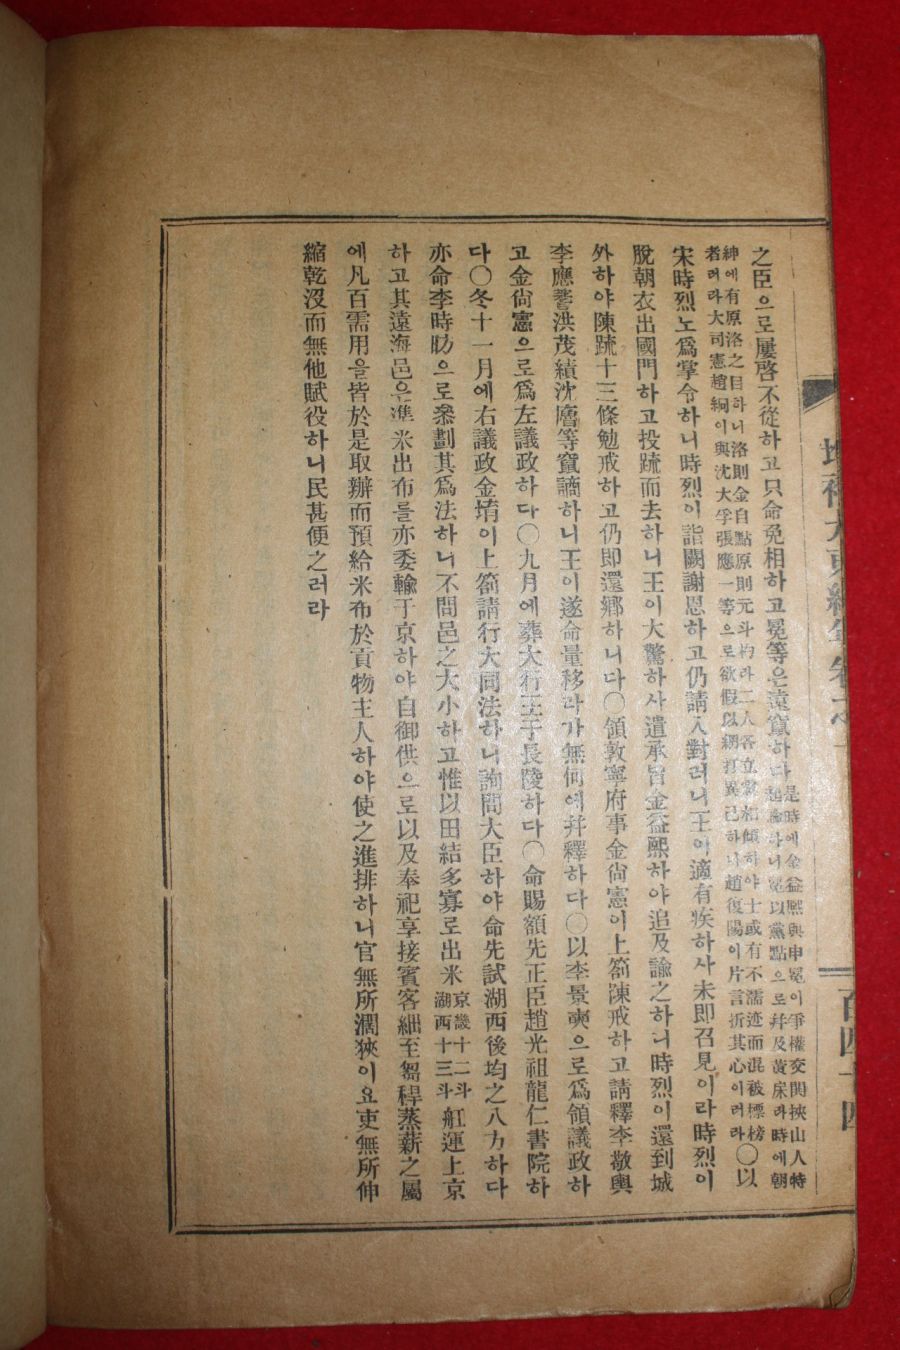 之臣으로屢啓不從하고只命免相하고冕等은遠竄하다
是時에金益熙與申冕이爭權交閧挾山人特
論하니冕以黨點으로幷及黃床라時에朝
紳에有原洛之目하니洛則金自點原則元斗杓라二人各立黨相傾하야士或有不濡迹而混被標榜
者러라大司憲趙絅이與沈大孚張應一等으로欲假以網打異己하니趙復陽이片言折其心이러라
〇以
宋時烈노爲掌令하니時烈이詣闕謝恩하고仍請入對러니王이適有疾하사未即召見이라時烈이
脫朝衣出國門하고投疏而去하니王이大驚하사遣承旨金益熙하야追及諭之하니時烈이還到城
外하야陳疏十三條勉戒하고仍即還鄕하니다〇領敦寧府事金尙憲이上箚陳戒하고請釋李敬輿
李應蓍洪茂績沈𢋡等竄謫하니王이遂命量移라가無何에幷釋하다〇以李景奭으로爲領議政하
고金尙憲으로爲左議政하다〇九月에葬大行王于長陵하다〇命賜額先正臣趙光祖龍仁書院하
다〇冬十一月에右議政金堉이上箚請行大同法하니詢問大臣하야命先試湖西後均之八方하다
亦命李時昉으로叅劃其爲法하니不問邑之大小하고惟以田結多寡로出米
京畿十二斗
湖西十三斗
舡運上京
하고其遠海邑은準米出布를亦委輸于京하야自御供으로以及奉祀享接賓客細至芻稈蒸薪之屬
에凡百需用을皆於是取辦而預給米布於貢物主人하야使之進排하니官無所濶狹이요吏無所伸
縮乾沒而無他賦役하니民甚便之러라